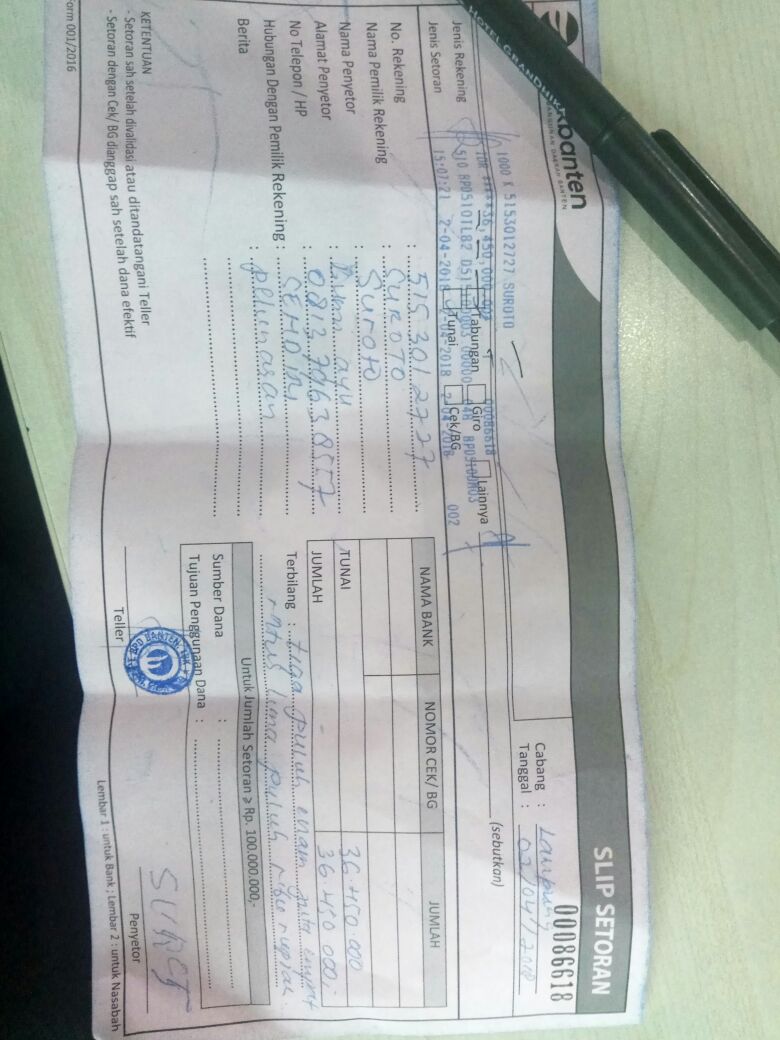 bankbanten
PEMBANGUNAN DAERAH BANTEN
HOTEL GRANDHIKA
SLIP SETORAN
00086618
Cabang : Lampung
Tanggal : 02/04/2018
1000 K 5153012727 SUROTO
00086618
15:07:21 2-04-2018 2-04-2018 2-04-2018 002
Jenis Rekening Tabungan Giro Lainnya (sebutkan)
Jenis Setoran Tunai Cek/BG
No. Rekening : 515 301 2727
Nama Pemilik Rekening : SUROTO
Nama Penyetor : Suroto
Alamat Penyetor
No Telepon / HP : 0813 7963 8557
Hubungan Dengan Pemilik Rekening :
Berita : Pelunasan
NAMA BANK NOMOR CEK/ BG JUMLAH
TUNAI 36.450.000
JUMLAH 36.450 000,-
Terbilang : tiga puluh enam juta empat
ratus lima puluh ribu rupiah
Untuk Jumlah Setoran ≥ Rp. 100.000.000,-
Sumber Dana :
Tujuan Penggunaan Dana :
KETENTUAN
- Setoran sah setelah divalidasi atau ditandatangani Teller
- Setoran dengan Cek/ BG dianggap sah setelah dana efektif
Teller
Penyetor
Form 001/2016
Lembar 1 : untuk Bank ; Lembar 2 : untuk Nasabah